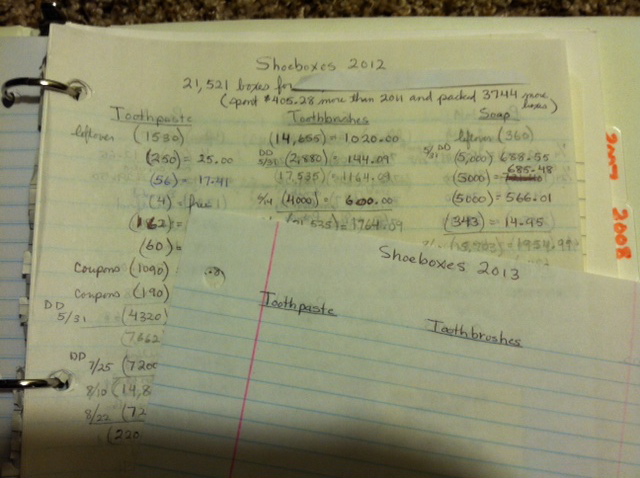 Shoeboxes 2012
21,521 boxes for
(spent $405.28 more than 2011 and packed 3744 more boxes)
Toothpaste
leftover (1530)
(250) = 25.00
(56) = 17.41
(4) = free
(162) =
(60) =
Coupons (1090)
Coupons (190)
DD 5/31 (4320)
7,662
DD 7/25 (7200
8/10 (14,8
8/22 (72
(220
Toothbrushes
(14,655) = 1020.00
DD 5/31 (2,880) = 144.09
(17,535) = 1164.09
(4000) = 600.00
(21,535) = 1764.09
Soap
leftover (360)
5/31 DD (5,000) 688.55
(5000) = 685.48
(5000) = 566.01
(343) = 14.95
Shoeboxes 2013
Toothpaste
Toothbrushes
2007
2008